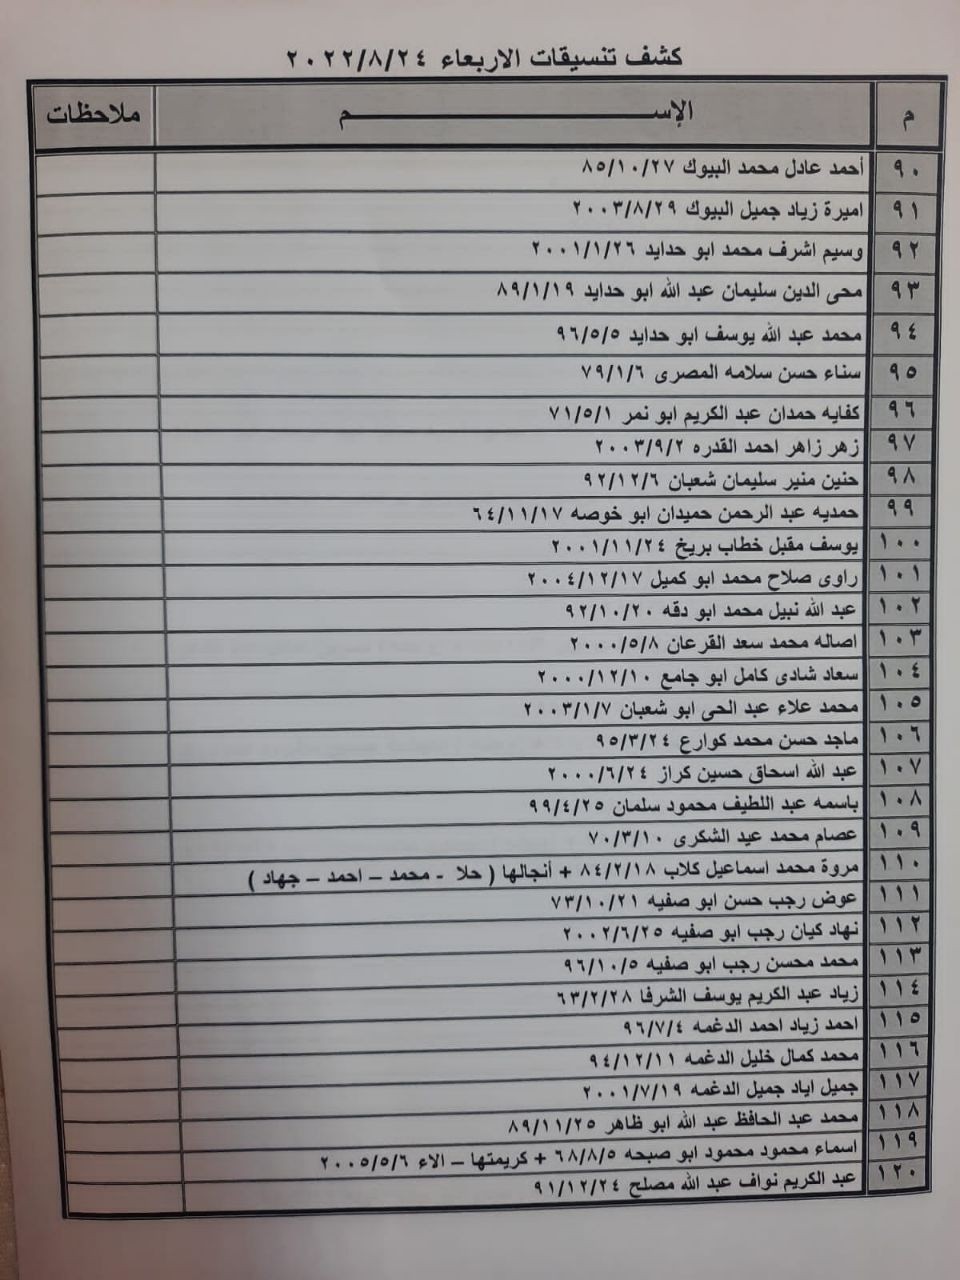 كشف تنسيقات الاربعاء ٢٠٢٢/٨/٢٤
م الإســـــــــم ملاحظات
٩٠ أحمد عادل محمد البيوك ٨٥/١٠/٢٧
٩١ اميرة زياد جميل البيوك ٢٠٠٣/٨/٢٩
٩٢ وسيم اشرف محمد ابو حدايد ٢٠٠١/١/٢٦
٩٣ محى الدين سليمان عبد الله ابو حدايد ٨٩/١/١٩
٩٤ محمد عبد الله يوسف ابو حدايد ٩٦/٥/٥
٩٥ سناء حسن سلامه المصرى ٧٩/١/٦
٩٦ كفايه حمدان عبد الكريم ابو نمر ٧١/٥/١
٩٧ زهر زاهر احمد القدره ٢٠٠٣/٩/٢
٩٨ حنين منير سليمان شعبان ٩٢/١٢/٦
٩٩ حمديه عبد الرحمن حميدان ابو خوصه ٦٤/١١/١٧
١٠٠ يوسف مقبل خطاب بريخ ٢٠٠١/١١/٢٤
١٠١ راوى صلاح محمد ابو كميل ٢٠٠٤/١٢/١٧
١٠٢ عبد الله نبيل محمد ابو دقه ٩٢/١٠/٢٠
١٠٣ اصاله محمد سعد القرعان ٢٠٠٠/٥/٨
١٠٤ سعاد شادى كامل ابو جامع ٢٠٠٠/١٢/١٠
١٠٥ محمد علاء عبد الحى ابو شعبان ٢٠٠٣/١/٧
١٠٦ ماجد حسن محمد كوارع ٩٥/٣/٢٤
١٠٧ عبد الله اسحاق حسين كراز ٢٠٠٠/٦/٢٤
١٠٨ باسمه عبد اللطيف محمود سلمان ٩٩/٤/٢٥
١٠٩ عصام محمد عيد الشكرى ٧٠/٣/١٠
١١٠ مروة محمد اسماعيل كلاب ٨٤/٢/١٨ + أنجالها ( حلا - محمد – احمد – جهاد )
١١١ عوض رجب حسن ابو صفيه ٧٣/١٠/٢١
١١٢ نهاد كيان رجب ابو صفيه ٢٠٠٢/٦/٢٥
١١٣ محمد محسن رجب ابو صفيه ٩٦/١٠/٥
١١٤ زياد عبد الكريم يوسف الشرفا ٦٣/٢/٢٨
١١٥ احمد زياد احمد الدغمه ٩٦/٧/٤
١١٦ محمد كمال خليل الدغمه ٩٤/١٢/١١
١١٧ جميل اياد جميل الدغمه ٢٠٠١/٧/١٩
١١٨ محمد عبد الحافظ عبد الله ابو ظاهر ٨٩/١١/٢٥
١١٩ اسماء محمود محمود ابو صبحه ٦٨/٨/٥ + كريمتها – الاء ٢٠٠٥/٥/٦
١٢٠ عبد الكريم نواف عبد الله مصلح ٩١/١٢/٢٤